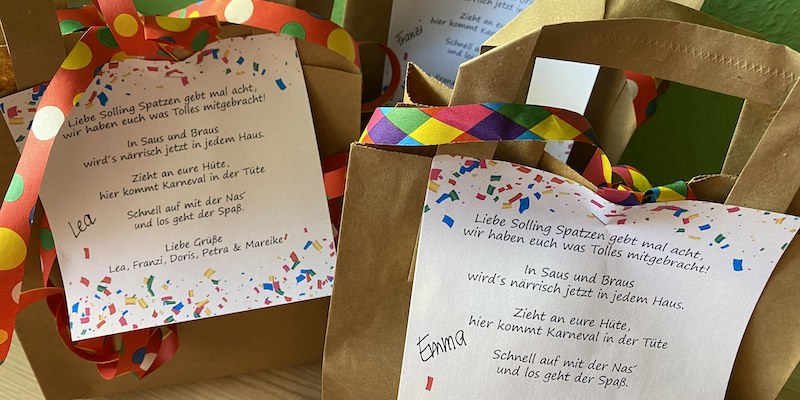 Liebe Solling Spatzen gebt mal acht,
wir haben euch was Tolles mitgebracht!
In Saus und Braus
wird's närrisch jetzt in jedem Haus.
Zieht an eure Hüte,
hier kommt Karneval in der Tüte
Schnell auf mit der Nas´
und los geht der Spaß.
Liebe Grüße
Lea, Franzi, Doris, Petra & Mareike
Lea
Franzi
Zieht an
hier kommt Kar
Schnell auf
und los
Liebe Solling Spatzen gebt mal acht,
wir haben euch was Tolles mitgebracht!
In Saus und Braus
wird´s närrisch jetzt in jedem Haus.
Zieht an eure Hüte,
hier kommt Karneval in der Tüte
Schnell auf mit der Nas´
und los geht der Spaß.
Emma